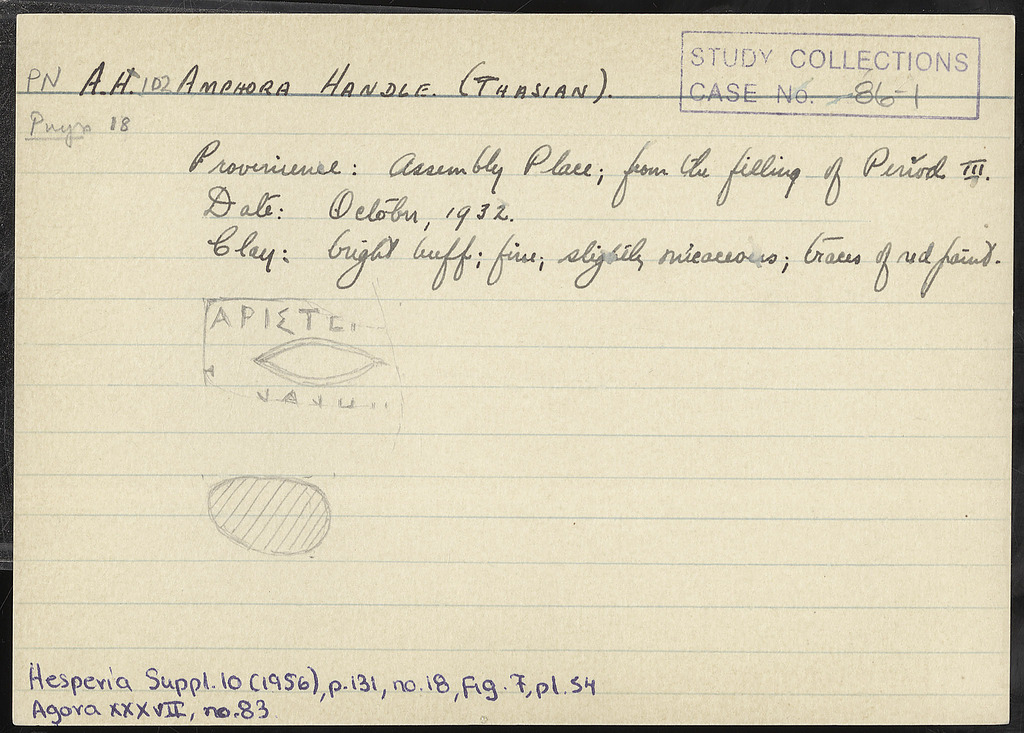 STUDY COLLECTIONS
CASE No. 86-1
PN A.H. 102 AMPHORA HANDLE. (THASIAN).
Pnyx 18
Provenience: Assembly Place; from the filling of Period III.
Date: October, 1932.
Clay: bright buff; fine; slightly micaceous; traces of red paint.
ΑΡΙΣΤΕ
Hesperia Suppl. 10 (1956), p. 131, no. 18, Fig. 7, pl. 54
Agora XXXVII, no. 83